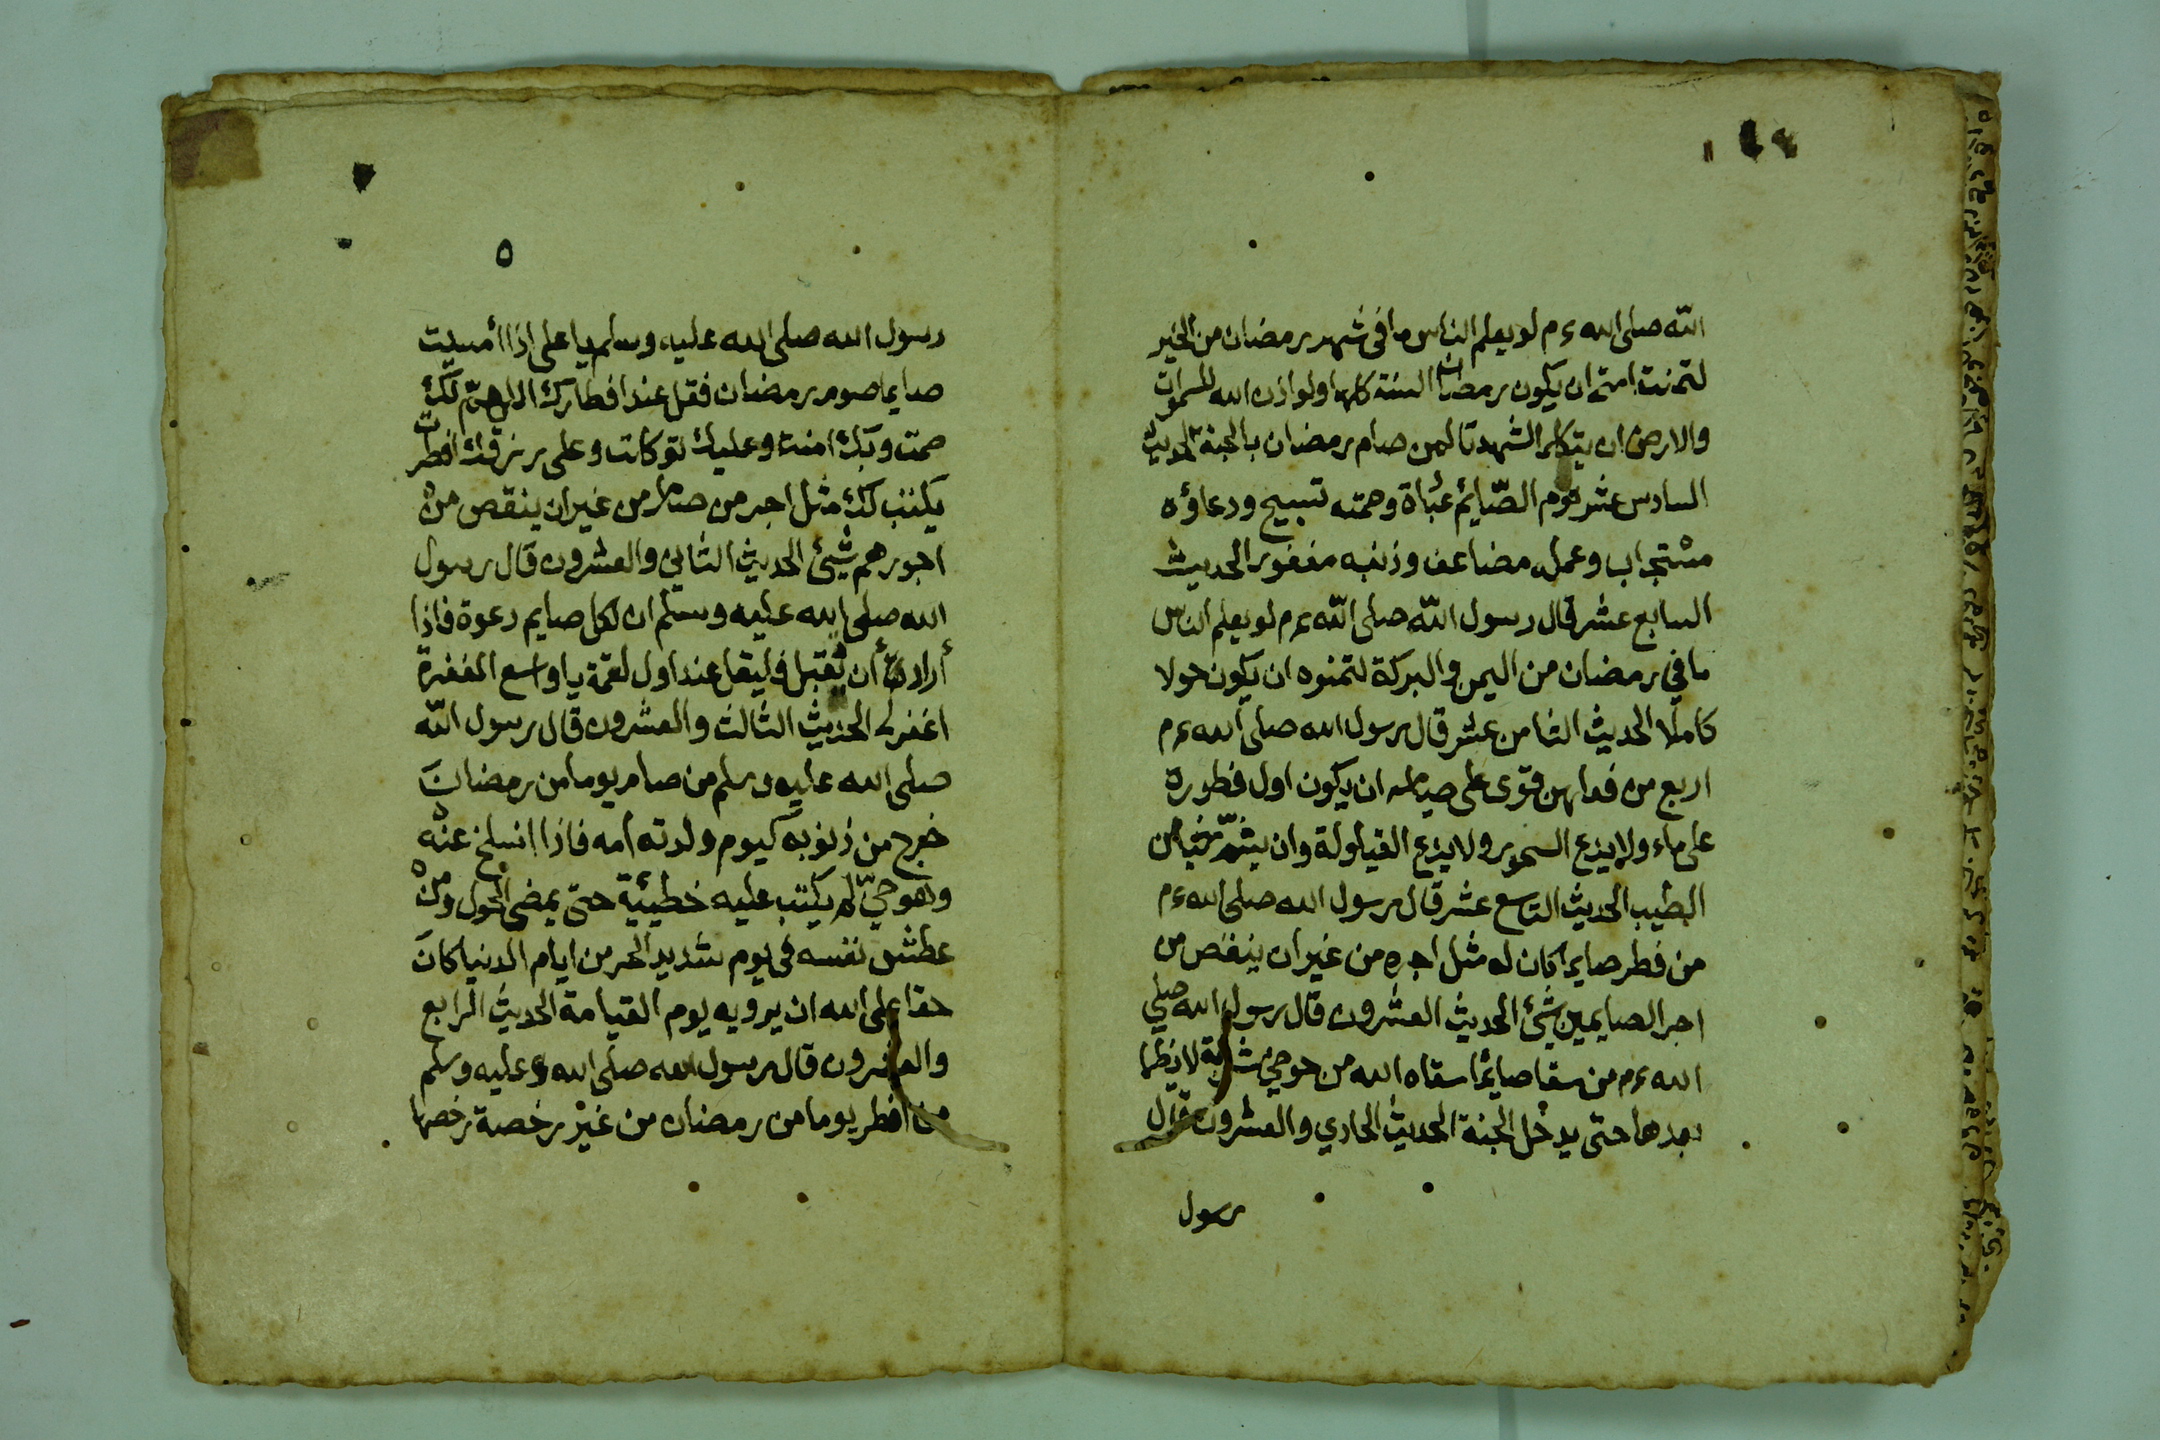 الله صلى الله ءم لو يعلم الناس ما في شهر رمضان من الخير
لتمنت امتي ان يكون رمضان السنة كلها ولو اذن الله للسموات
والارض ان يتكلما لشهدتا لمن صام رمضان بالجنة الحديث
السادس عشر نوم الصّايم عبادة وصمته تسبيح ودعاؤه
مستجاب وعمله مضاعف وذنبه مغفور الحديث
السابع عشر قال رسول الله صلى الله ءم لو يعلم الناس
ما في رمضان من اليمن والبركة لتمنوه ان يكون حولا
كاملا الحديث الثامن عشر قال رسول الله صلى الله ءم
اربع من فعلهن قوى على صيامه ان يكون اول فطوره
على ماء ولا يدع السحور ولا يدع القيلولة وان يشمّ شيئا من
الطيب الحديث التاسع عشر قال رسول الله صلى الله ءم
من فطر صايما كان له مثل اجره من غير ان ينقص من
اجر الصايمين شئ الحديث العشرون قال رسول الله صلى
الله ءم من سقا صائما سقاه الله من حوضي شربة لا يظما
بعدها حتى يدخل الجنة الحديث الحادي والعشرون قال
رسول
٥
رسول الله صلى الله عليه وسلم يا على اذا أمسيت
صايما صوم رمضان فقل عند افطارك اللهمّ لك
صمت وبك امنت وعليك توكلت وعلى رزقك افطرت
يكتب لك مثل اجر من صام من غير ان ينقص من
اجورهم شيئ الحديث الثاني والعشرون قال رسول
الله صلى الله عليه وسلم ان لكل صايم دعوة فاذا
أراد أن تقبل فليقل عند اول لقمة يا واسع المغفرة
اغفر لي الحديث الثالث والعشرون قال رسول الله
صلى الله عليه وسلم من صام يوما من رمضان
خرج من ذنوبه كيوم ولدته أمه فاذا انسلخ عنه
وهو حيّ لم يكتب عليه خطيئة حتى يمضى الحول ومن
عطش نفسه في يوم شديد الحر من ايام الدنيا كان
حقا على الله ان يرويه يوم القيامة الحديث الرابع
والعشرون قال رسول الله صلى الله عليه وسلم
من افطر يوما من رمضان من غير رخصة رخصها